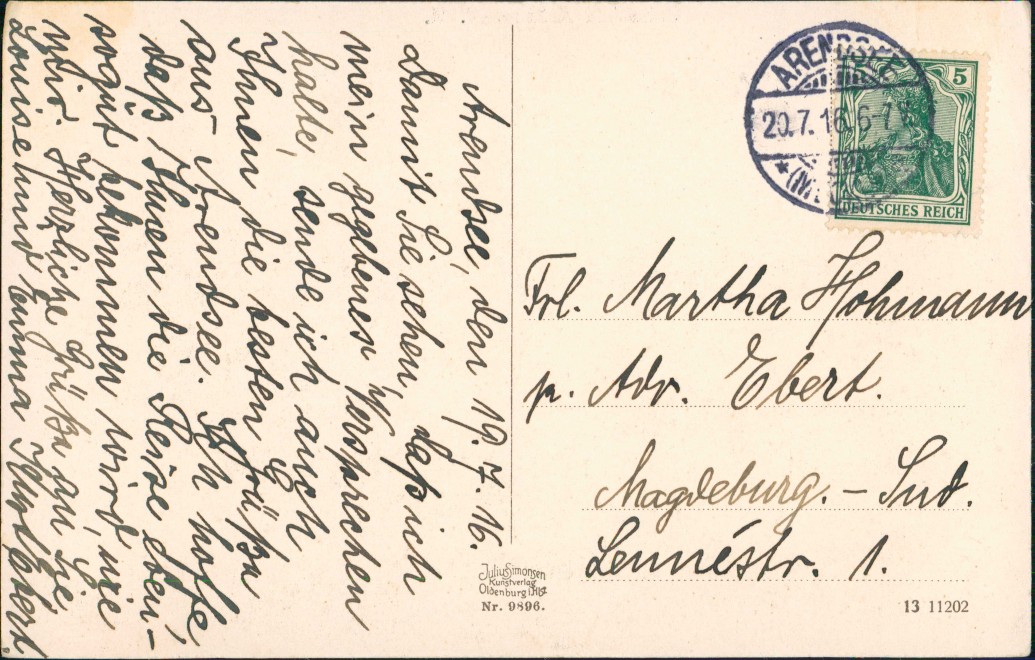 Arendsee, den 19.7.16.
Damit Sie sehen, daß ich
mein gegebenes Versprechen
halte, sende ich auch
Ihnen die besten Grüße
aus Arendsee. Ich hoffe
daß Ihnen die Reise eben-
sogut bekommen wird, wie
mir. Herzliche Grüße an Sie
Louise und Emma Ebert
ARENDSEE
20.7.16.6-7
5
DEUTSCHES REICH
Frl. Martha Hohmann
p. Adr. Ebert.
Magdeburg. - Sud.
Lennéstr. 1.
Julius Simonsen
Kunstverlag
Oldenburg i. Hlst
Nr. 9896.
13 11202